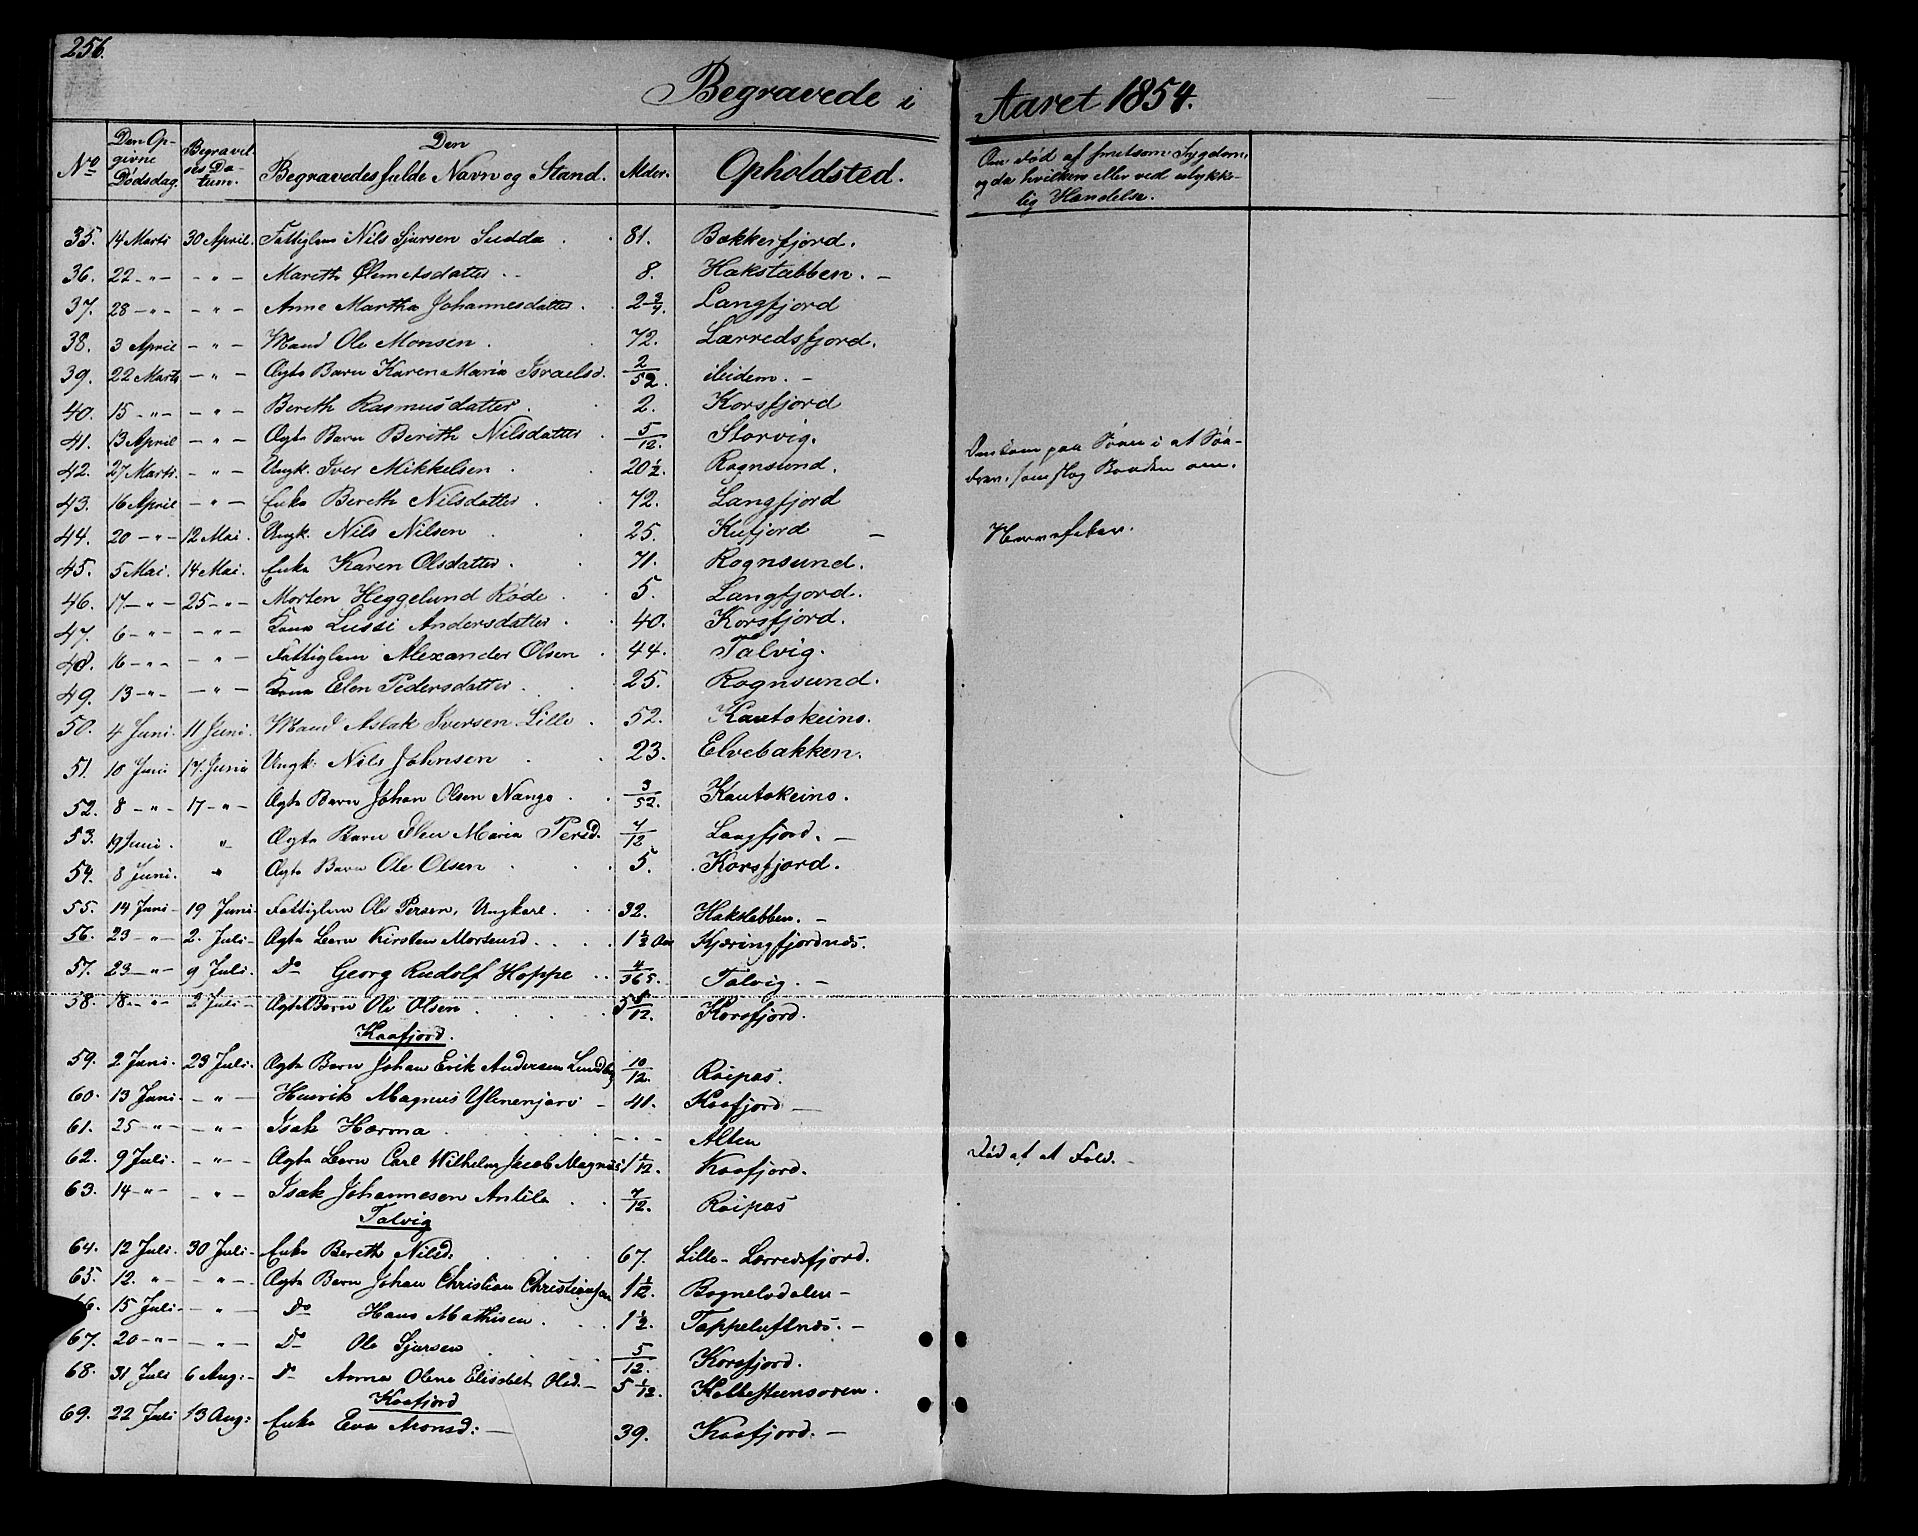 256.
Begravede i Aaret 1854.
No Den Opgivne Dødsdag. Begravelses Datum. Den Begravedes fulde Navn og Stand. Alder. Opholdsted. Om død af smitsom Sygdom, og da hvilken eller ved ulykkelig Hændelse.
35. 14 Marts 30 April. Fattiglem Nils Sjursen Sudda 81. Bekkerfjord.
36. 22 -"- -"- Mareth Ølmetsdatter 8. Hakstabben.
37. 28 -"- -"- Anne Martha Johannesdatter 2 3/4. Langfjord
38. 3 April -"- Mand Ole Monsen 72. Lærredsfjord.
39. 22 Marts -"- Ægte Barn Karen Maria Israelsd. 2/52. ibidem. -
40. 15 -"- -"- Bereth Rasmusdatter. 2. Korsfjord
41. 13 April -"- Ægte Barn Berith Nilsdatter 5/12. Storvig.
42. 27 Marts. -"- Ungk. Iver Mikkelsen 20 1/2. Rognsund. Omkom paa Søen i at Søndrev. som slog Baaden om.
43. 16 April -"- Enke Bereth Nilsdatter 72. Langfjord
44. 20 -"- 12 Mai. Ungk. Nils Nilsen 25. Kufjord -
45. 5 Mai. 14 Mai. Enke Karen Olsdatter 71. Rognsund.
46. 17 -"- 25 -"- Morten Heggelund Røde. 5. Langfjord.
47. 6 -"- -"- Kone Lussi Andersdatter 40. Korsfjord.
48. 16 -"- -"- Fattiglem Alexander Olsen 44. Talvig.
49. 13 -"- -"- Kone Elen Pedersdatter 25. Rognsund.
50. 4 Juni. 11 Juni. Mand Aslak Iversen Lille 52. Kautokeino.
51. 10 Juni 17. Junii Ungk. Nils Johnsen 23. Elvebakken.
52. 8 -"- 17 -"- Ægte Barn Johan Olsen Nango 3/52. Kautokeino.
53. 19 Juni. " Ægte Barn Elen Maria Persd. 7/12 Langfjord. -
54. 8 Juni. " Ægte Barn Ole Olsen 5. Korsfjord.
55. 14 Juni 19 Juni Fattiglem Ole Persen, Ungkarl. 32. Hakstabben. -
56. 23 -"- 2. Juli Ægte Barn Kirsten Mortensd. 1 1/2 Aar Kjæringfjordnæs.
57. 23 -"- 9 Juli. Do Georg Rudolf Hoppe 4/365. Talvig. -
58. 18 -"- 2 Juli Ægte Barn Ole Olsen 5 5/12. Korsfjord.
Kaafjord.
59. 2 Juni. 23 Juli. Ægte Barn Johan Erik Andersen Lundberg 10/12. Raipas.
60. 13 Juni -"- Henrik Magnus Ylinenjarvi 41. Kaafjord -
61. 25 -"- -"- Isak Hærma - . - Alten
62. 9 Juli. -"- Ægte Barn Carl Wilhelm Jacob Magnus 1 1/12. Kaafjord. Død af et Fald. -
63. 14 -"- -"- Isak Johannesen Antila 7/12. Raipas
Talvig
64. 12 Juli. 30 Juli Enke Bereth Nilsd: 67. Lille-Lærredsfjord.
65. 12. " -"- Ægte Barn Johan Christian Christiansen 1 1/12. Bognelvdalen -
66. 15 Juli -"- Do Hans Mathisen 1 1/2. Tappeluftnæs. -
67. 20 -"- -"- Do Ole Sjursen 5/12. Korsfjord.
68. 31 Juli 6 Aug: Do Anne Olene Elisabet Olsd. - 5 1/12. Kobbesteensøren.
Kaafjord
69. 22 Juli 13 Aug: Enke Eva Aronsd: - 39. Kaafjord. -